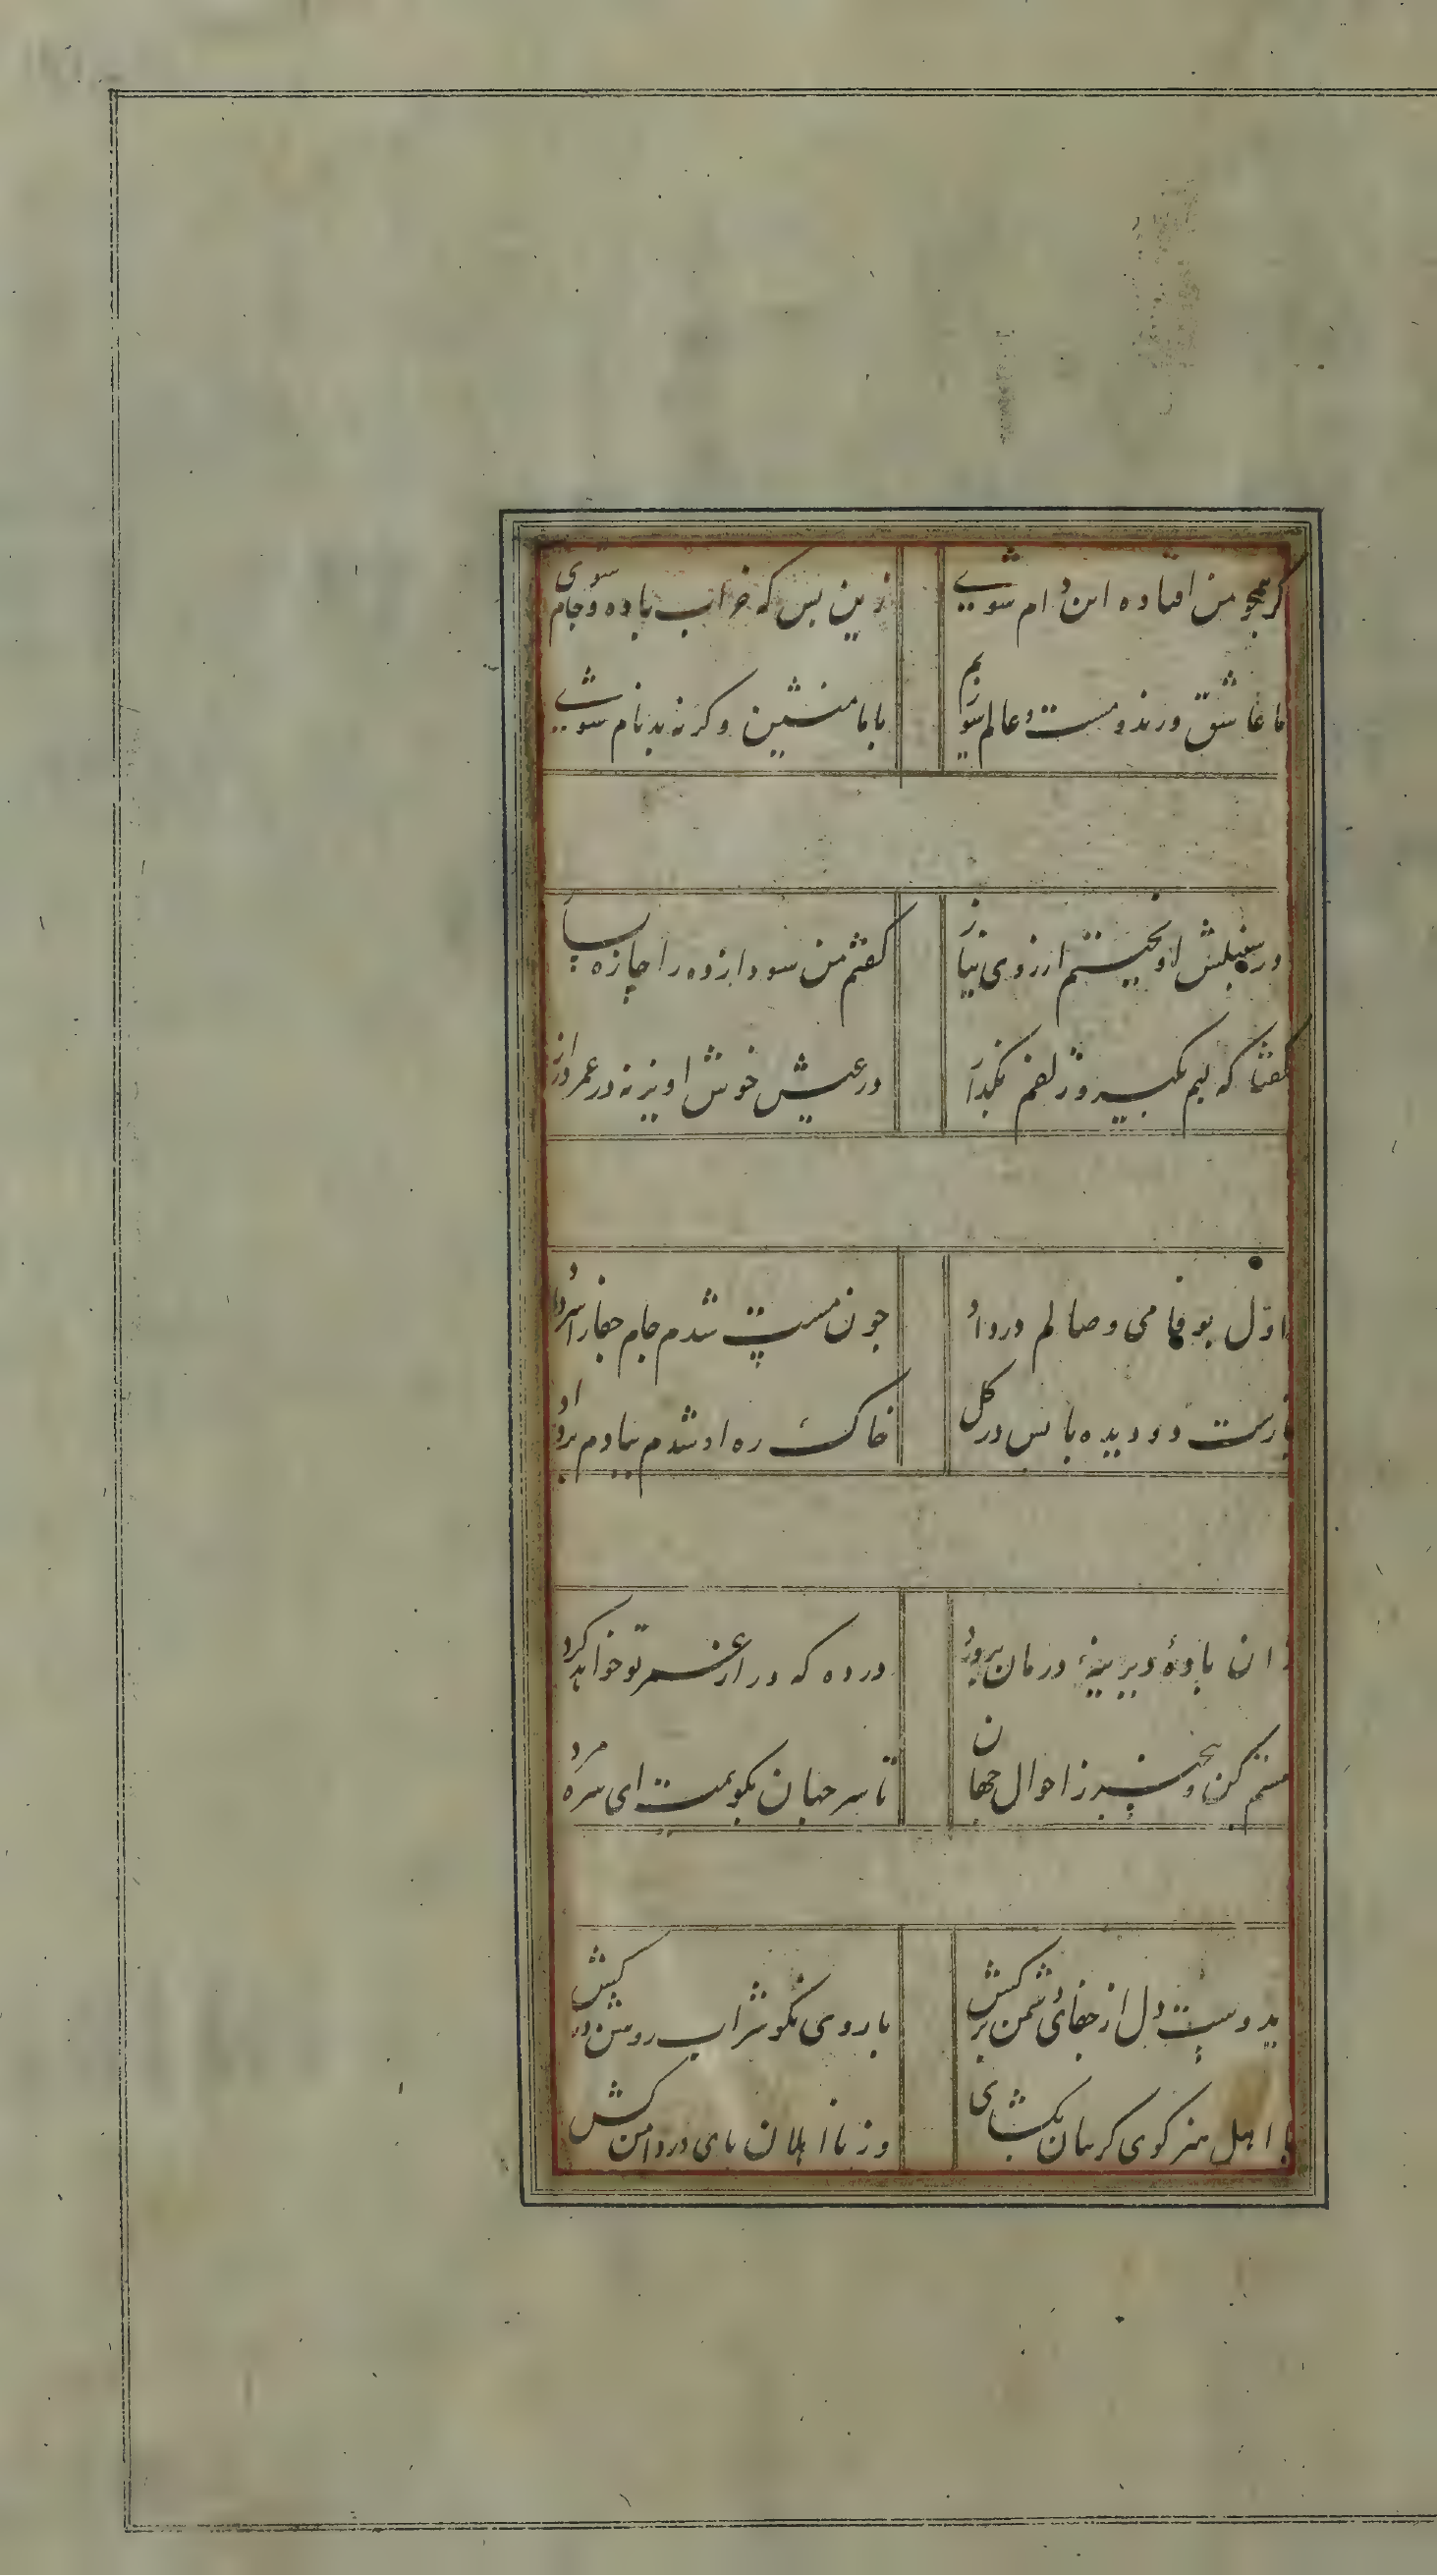 گر همچو من افتاده این دام شوی
زین پس که خراب باده و جام شوی
ما عاشق و رند و مست و عالم سوزیم
با ما منشین وگرنه بدنام شوی
در سنبلش اویختم از روی نیاز
گفتم من سودازده را چاره بساز
گفتا که لبم بگیر و زلفم بگذار
در عیش خوش اویز نه در عمر دراز
اوّل بوفا می وصالم درداد
چون مست شدم جام جفا را سرداد
پر آب دو دیده با پس در گل
خاک ره او شدم ببادم برداد
ان بادهٔ دیرینهٔ درمان پرورد
درده که دراز عمر تو خواهد کرد
مستم کن و بیخبر ز احوال جهان
تا سر جهان بگویمت ای سره مرد
بدوست دل از جفای دشمن درکش
با روی نکو شراب روشن درکش
با اهل هنر گوی گریبان بگشای
وز نا اهلان پای در دامن کش